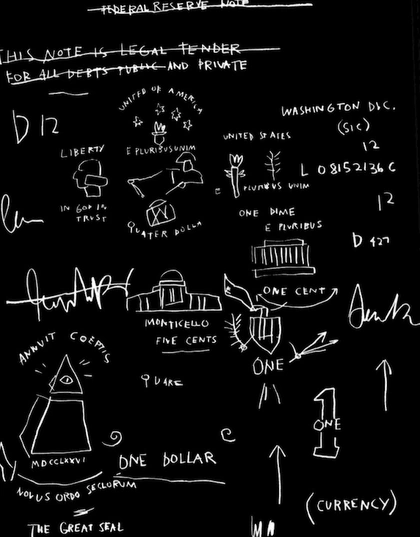 FEDERAL RESERVE NOTE
THIS NOTE IS LEGAL TENDER
FOR ALL DEBTS PUBLIC AND PRIVATE
UNITED OF AMERICA
D 12
WASHINGTON D.C.
(SIC)
12
UNITED STATES
LIBERTY
E PLURIBUS UNIM
L 08152136 C
PLURIBUS UNIM
12
IN GOD IN
TRUST
QUATER DOLLA
ONE DIME
E PLURIBUS
D 427
ONE CENT
MONTICELLO
FIVE CENTS
ANNUIT COEPTIS
ONE
QUARE
1
ONE
MDCCLXXVI
ONE DOLLAR
NOVUS ORDO SECLORUM
(CURRENCY)
THE GREAT SEAL